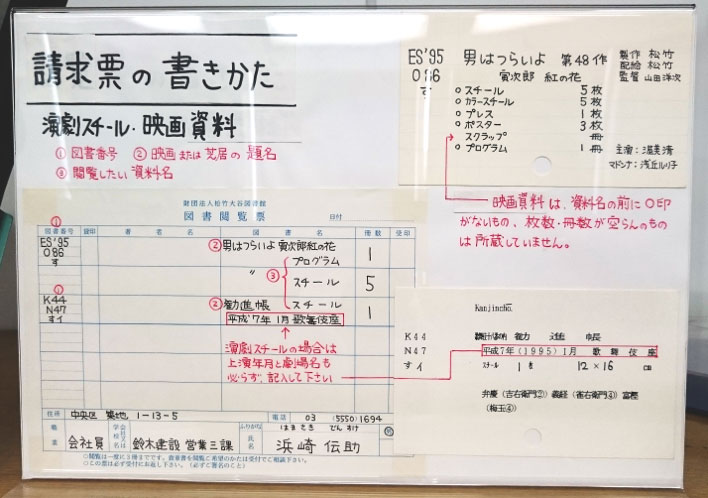 請求票の書きかた
演劇スチール・映画資料
①図書番号 ②映画または芝居の題名
③閲覧したい資料名
ES'95 男はつらいよ 第48作 製作 松竹
086 寅次郎 紅の花 配給 松竹
す 監督 山田洋次
○スチール 5枚
○カラースチール 5枚
○プレス 1枚
○ポスター 3枚
スクラップ 冊 主演:渥美清
○プログラム 1冊 マドンナ:浅丘ルリ子
映画資料は、資料名の前に○印
がないもの、枚数・冊数が空らんのもの
は所蔵していません。
財団法人松竹大谷図書館
図書閲覧票 日付
①
図書番号 証印 著者名 図書名 冊数 受印
ES'95 ②男はつらいよ 寅次郎紅の花 1
086 プログラム
す 〃 ③ スチール 5
①
K44 ②勧進帳 スチール 1
N47 平成7年1月歌舞伎座
すイ
演劇スチールの場合は
上演年月と劇場名も
必らず、記入して下さい
住所 中央区 築地 1-13-5 電話 03 (5550) 1694
ふりがな はまさき でんすけ
職業 会社員 会社又は学校名 鈴木建設 営業三課 氏名 浜崎伝助
○閲覧は一度に3冊までです。
○この票は必ず受付にお返し下さい。(必ずご署名のこと)
Kanjincho.
K44
N47 平成7年(1995)1月 歌舞伎座
すイ スチール 1 12×16 cm
弁慶(吉右衛門②)義経(雀右衛門④)富樫
(梅玉④)